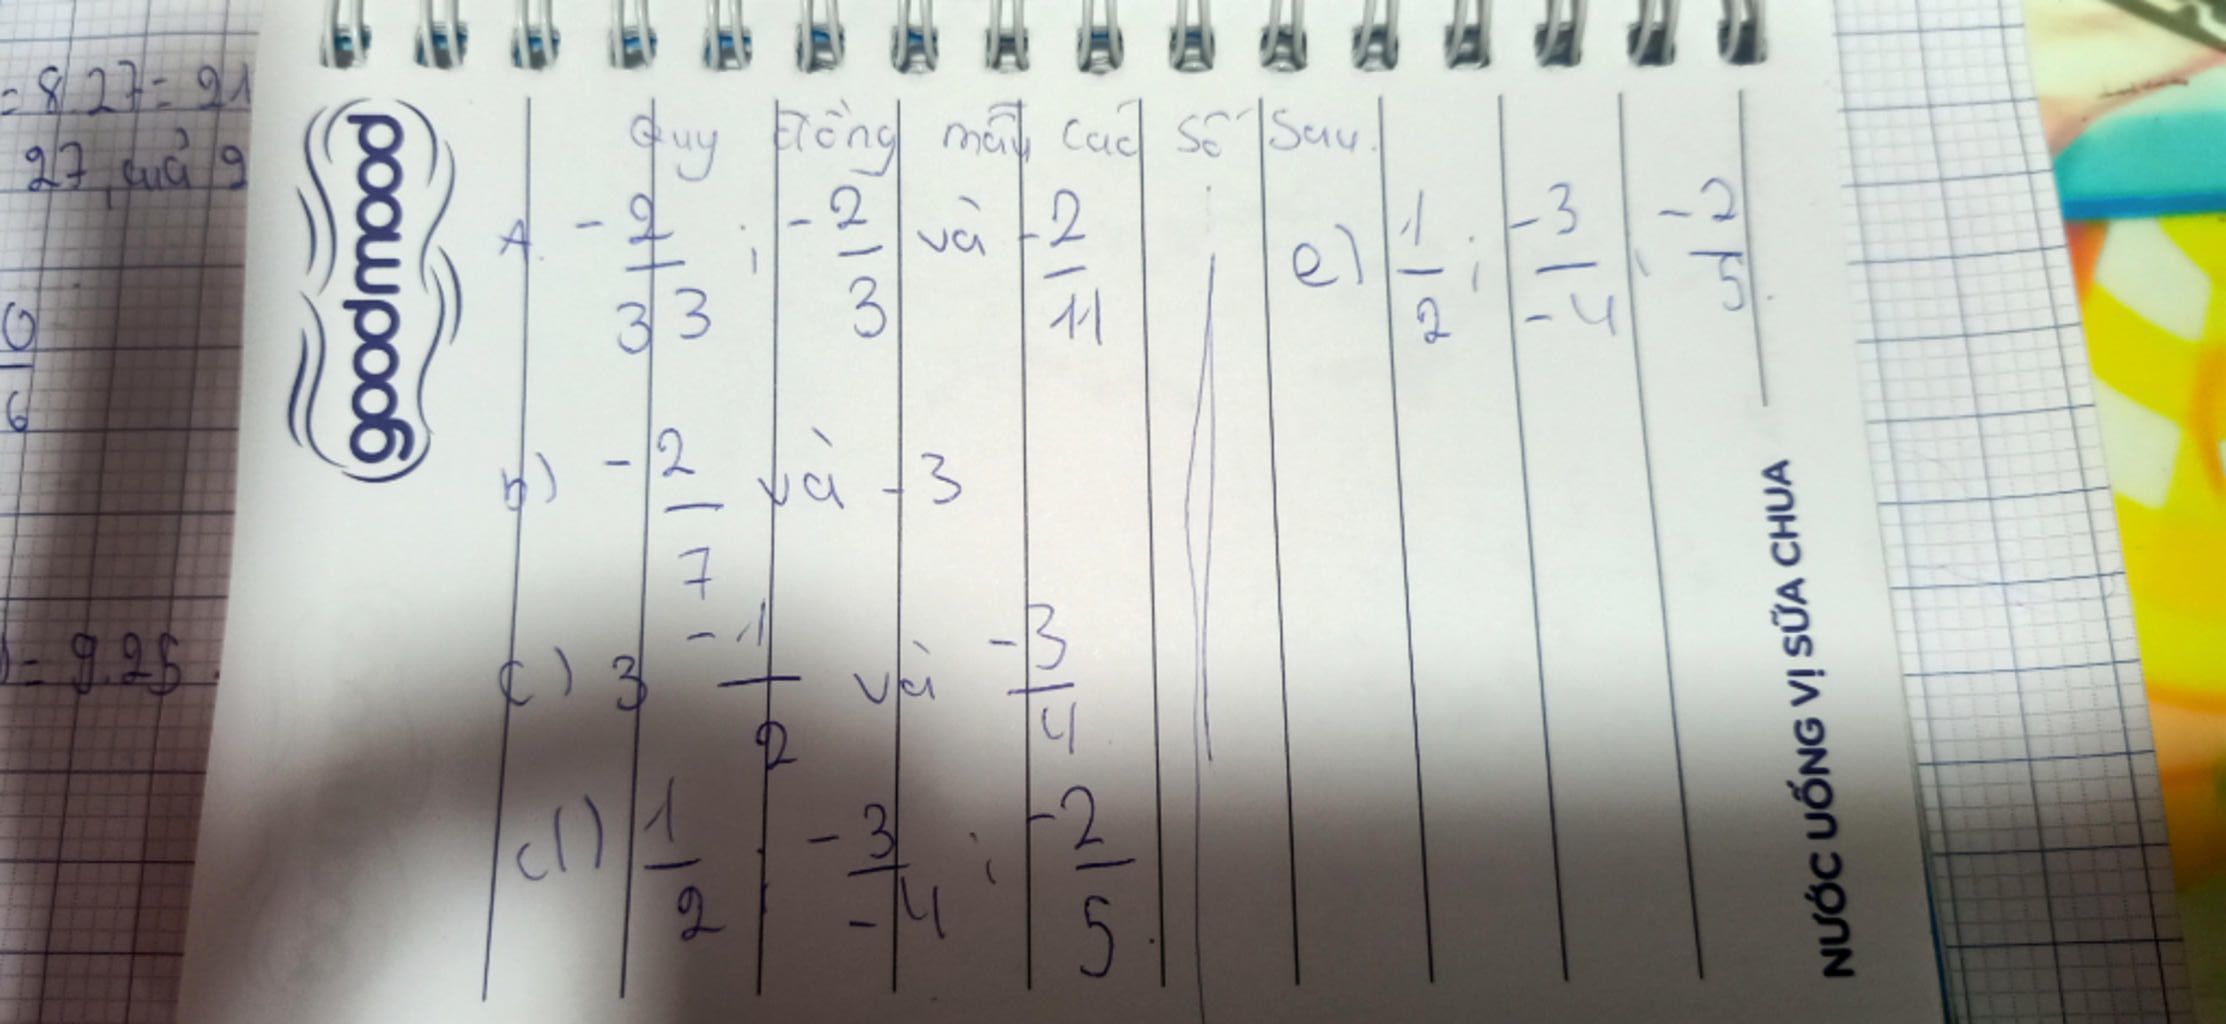 = 8 27 = 21
27, quả 9
0
6
= 9.25.
goodmood
Quy đồng mẫu các số sau.
A. -2/33 ; -2/3 và -2/11
b) -2/7 và -3
c) 3 -1/2 và -3/4
d) 1/2 ; -3/-4 ; -2/5.
e) 1/2 ; -3/-4 ; -2/5.
NƯỚC UỐNG VỊ SỮA CHUA